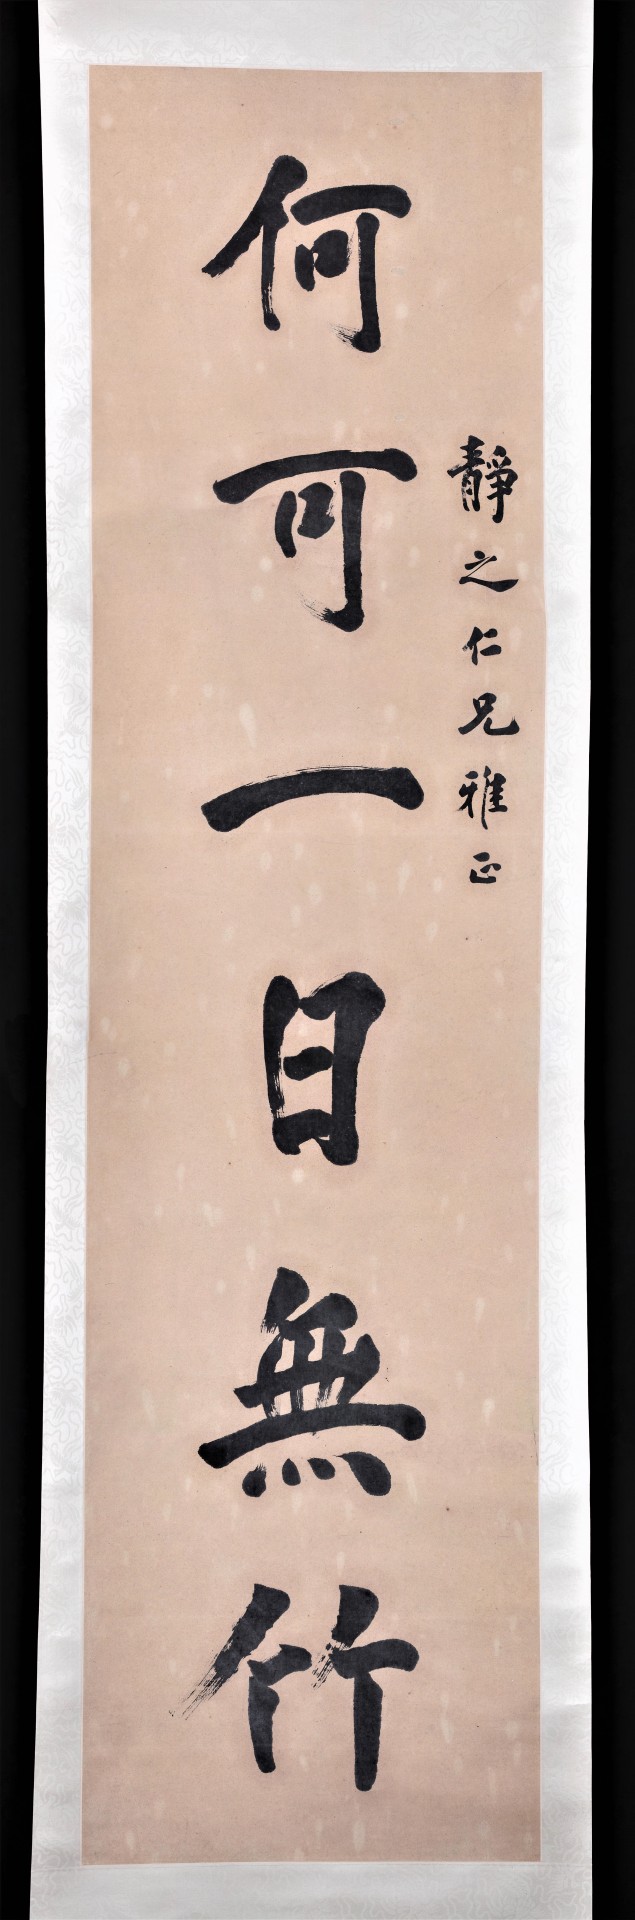 靜之仁兄雅正
何可一日無竹